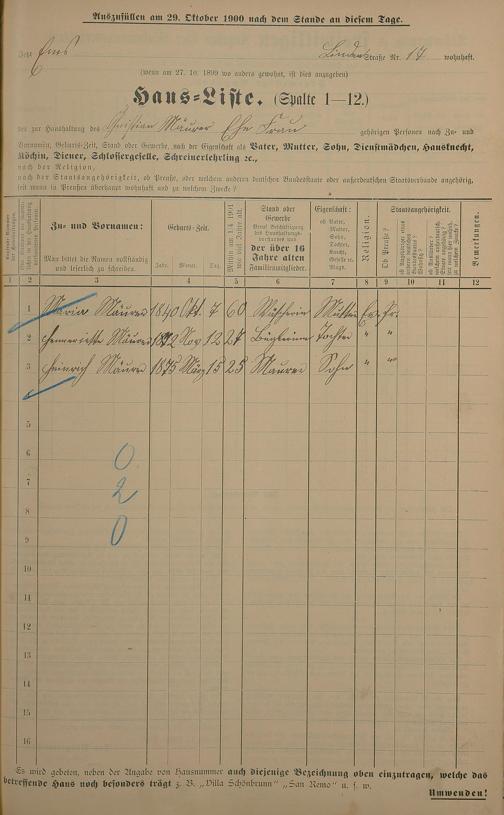 Auszufüllen am 29. Oktober 1900 nach dem Stande an diesem Tage.
Ems
Linden Straße Nr. 14 wohnhaft.
(wenn am 27. 10. 1899 wo anders gewohnt, ist dies anzugeben)
Haus-Liste. (Spalte 1—12.)
der zur Haushaltung des Christian Mäurer Ehe Frau gehörigen Personen nach Zu- und
Vornamen, Geburts-Zeit, Stand oder Gewerbe, nach der Eigenschaft als Vater, Mutter, Sohn, Dienstmädchen, Hausknecht,
Köchin, Diener, Schlossergeselle, Schreinerlehrling 2c.,
nach der Religion,
nach der Staatsangehörigkeit, ob Preuße, oder welchem anderen deutschen Bundesstaate oder außerdeutschen Staatsverbande angehörig,
seit wann in Preußen überhaupt wohnhaft und zu welchem Zwecke?
Zu- und Vornamen:
Man bittet die Namen vollständig und leserlich zu schreiben.
Geburts-Zeit.
Jahr. Monat. Tag.
Mithin am 1/4 1901 wie viel Jahre alt
Stand oder
Gewerbe
der über 16
Jahre alten
Familienmitglieder.
Eigenschaft:
ob Vater,
Mutter,
Sohn,
Tochter,
Knecht,
Geselle u.
Magd.
Religion.
Staatsangehörigkeit.
Ob Preuße?
Bemerkungen.
1 2 3 4 5 6 7 8 9 10 11 12
1 Maria Mäurer 1840 Okt. 7 60 Mutter Ev. Pr.
2 Mäurer 1872 Nov 12 27 Büglerin Tochter " "
3 Heinrich Mäurer 1875 März 15 25 Maurer Sohn " "
5
6
0
7
2
8
9
0
10
11
12
13
14
15
16
Es wird gebeten, neben der Angabe von Hausnummer auch diejenige Bezeichnung oben einzutragen, welche das
betreffende Haus noch besonders trägt z. B. „Villa Schönbrunn" „San Remo" u. s. w.
Umwenden!